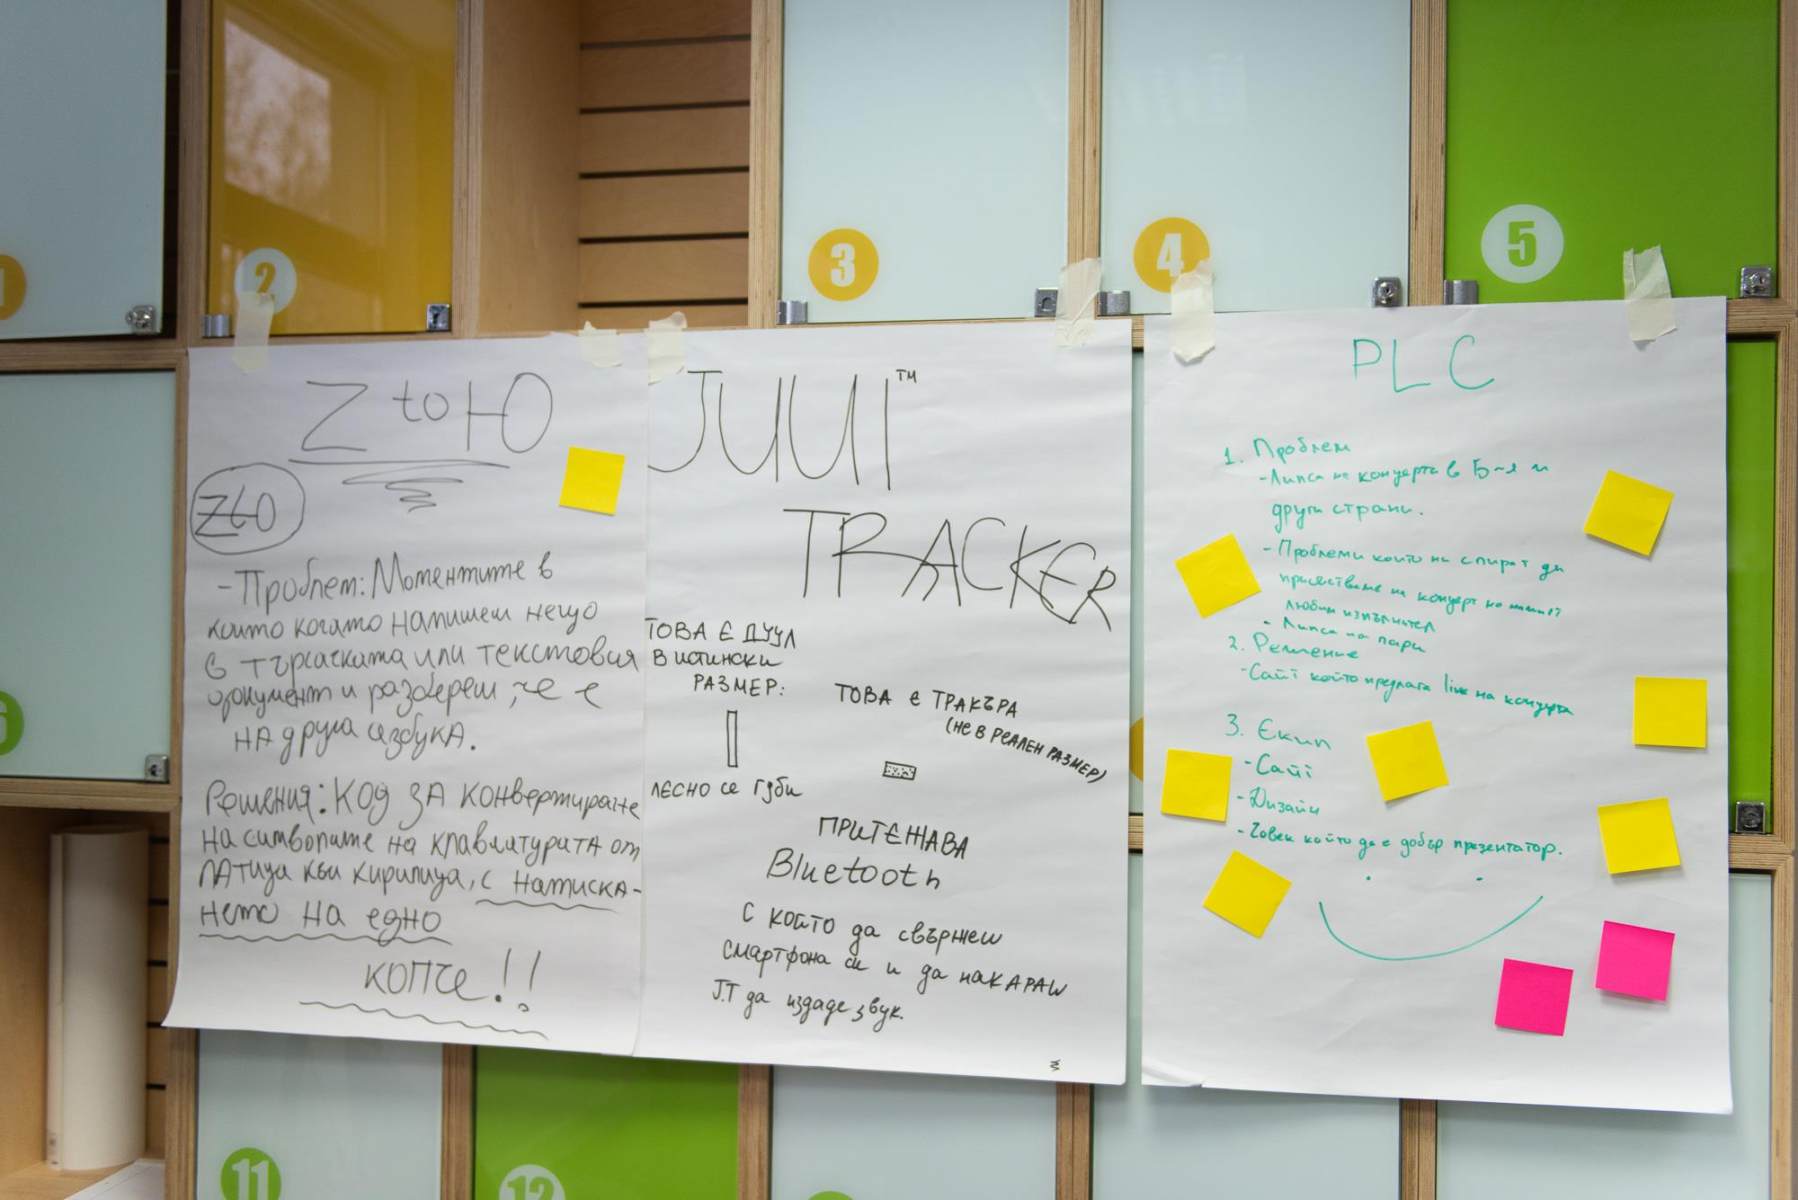 1
2
3
4
5
6
11
12
Z to Ю
ZtO
- Проблем: Моментите в
които когато напишеш нещо
в търсачката или текстовия
документ и разбереш, че е
на друга азбука.
Решения: Код за конвертиране
на символите на клавиатурата от
латица към кирилица, с натиска-
нето на едно
копче!!
JUUI™
TRACKER
ТОВА Е ДУУЛ
В ИСТИНСКИ
РАЗМЕР:
ЛЕСНО СЕ ГУБИ
ТОВА Е ТРАКЪРА
(НЕ В РЕАЛЕН РАЗМЕР)
ПРИТЕЖАВА
Bluetooth
С КОЙТО да свържеш
смартфона си и да накараш
J.T да издаде звук.
PLC
1. Проблем
- Липса на концерти в Б-я и
други страни.
- Проблеми които ни спират да
на концерт на
любим изпълнител
- Липса на пари
2. Решение
- Сайт който предлага live на концерта
3. Екип
- Сайт
- Дизайн
- Човек който да е добър презентатор.